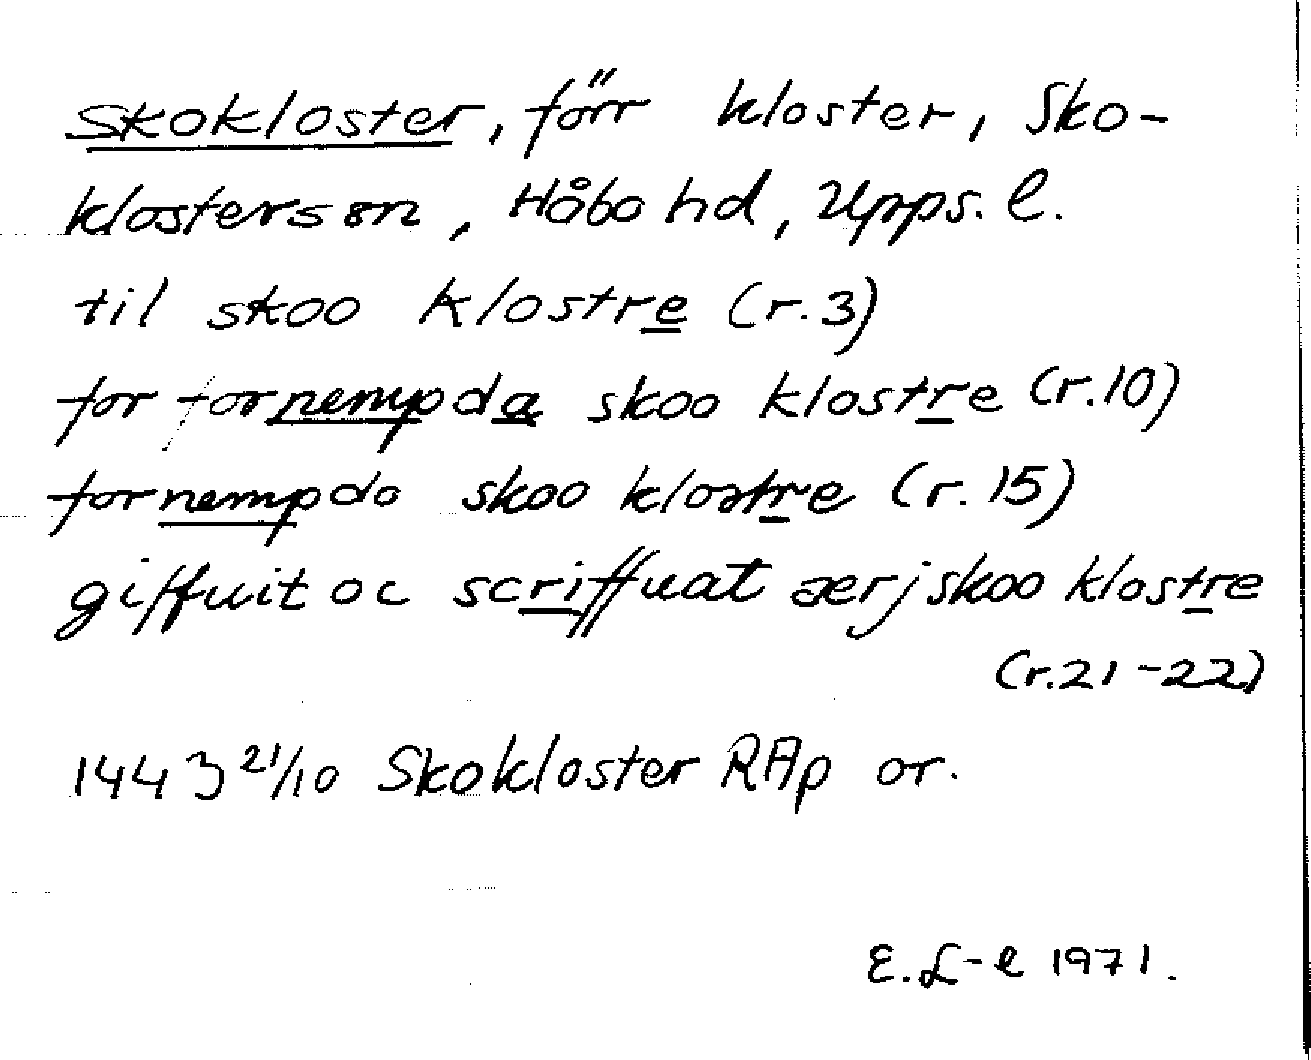 Skokloster, förr kloster, Sko-
klosters sn, Håbo hd, Upps. l.
til skoo klostre (r.3)
for fornempda skoo klostre (r.10)
fornempdo skoo klostre (r.15)
giffuit oc scriffuat ærj skoo klostre
(r.21-22)
1443 21/10 Skokloster RAp or.
E.L-e 1971.